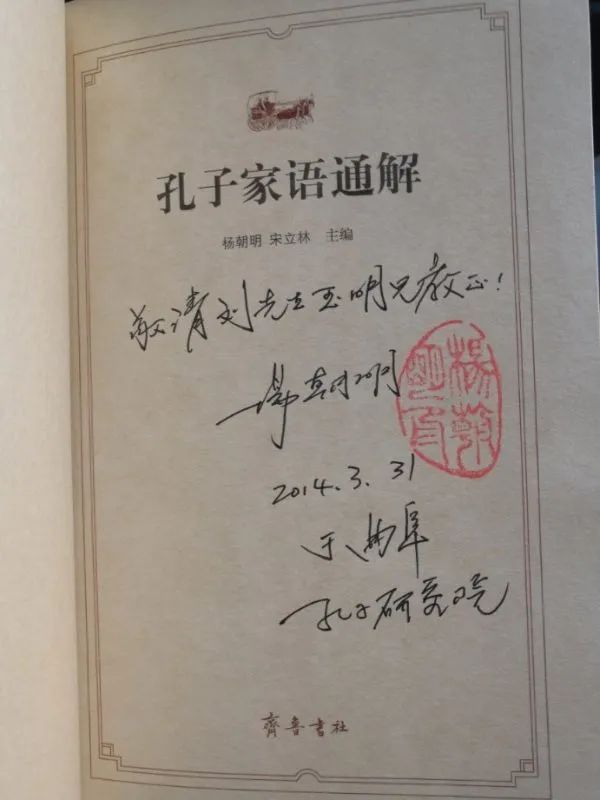 孔子家语通解
杨朝明 宋立林 主编
敬请刘先生玉明兄教正！
杨朝明
2014.3.31
于曲阜
孔子研究院
齊鲁书社